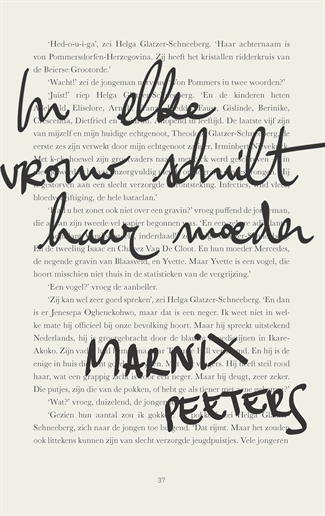 In elke
vrouw schuilt
haar moeder
MARNIX
PEETERS
‘Hed-o-u-i-ga’, zei Helga Glatzer-Schneeberg. ‘Haar achternaam is
von Pommersdorfen-Herzegovina. Zij heeft het kristallen ridderkruis van
de Beierse Grootorde.’
‘Wacht!’ zei de jongeman nerveus. ‘Von Pommers in twee woorden?’
‘Juist!’ riep Helga Glatzer-Schneeberg. ‘En de kinderen heten
Eliselore, Gislinde, Berinike,
Dietfried en in leeftijd. De laatste vijf zijn
van mijzelf en mijn huidige echtgenoot, Theodor Glatzer-Schneeberg, de
eerste zes zijn verwekt door mijn echtgenoten
zijn
gestorven aan een slecht verzorgde ontsteking. Infecties, wild vlees,
bloedvergiftiging, de hele bataclan.’
u het zonet ook niet over een gravin?’ vroeg puffend de jongeman,
die aan zijn tweede vel papier begonnen
En de tweeling Isaac en Van De Cloot. En hun moeder Mercedes,
de negende gravin van Blaasveld, en Yvette. Maar Yvette is een vogel, die
hoort misschien niet thuis in de statistieken van de vergrijzing.’
‘Een vogel?’ vroeg de aanbeller.
‘Zij kan wel zeer goed spreken’, zei Helga Glatzer-Schneeberg. ‘En dan
is er Jenesepa Oghenekohwo, maar dat is een neger. Ik weet niet in wel-
ke mate hij officieel bij onze bevolking hoort. Maar hij spreekt uitstekend
Nederlands, hij is grootgebracht door de in Ikare-
Akoko. Zijn En hij is de
enige in huis die Hij heeft steil rood
haar, wat een grappig Maar hij deugt, zeer zeker.
Die putjes, zijn die van de pokken, of hebt ge als tiener met
‘Wat?’ vroeg, duizelend, de
‘Gezien hun aantal zou ik zei Helga
Schneeberg, zich naar de jongen toe ‘Dat rijmt. Maar het zouden
ook littekens kunnen zijn van slecht verzorgde jeugdpuistjes. Vele jongeren
37